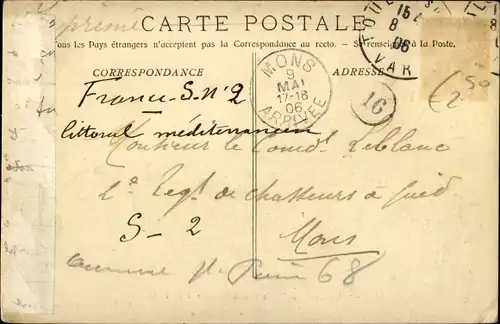 Imprimé
CARTE POSTALE
Tous les Pays étrangers n'acceptent pas la Correspondance au recto. - Se renseigner à la Poste.
CORRESPONDANCE
ADRESSE
MONS
9
MAI
17-18
06
ARRIVÉE
15
8
06
VAR
16
France-S. N° 2
littoral méditerranéen
Monsieur le Comdt. Leblanc
2e Regt. de chasseurs à pied
S-2
Mons
68